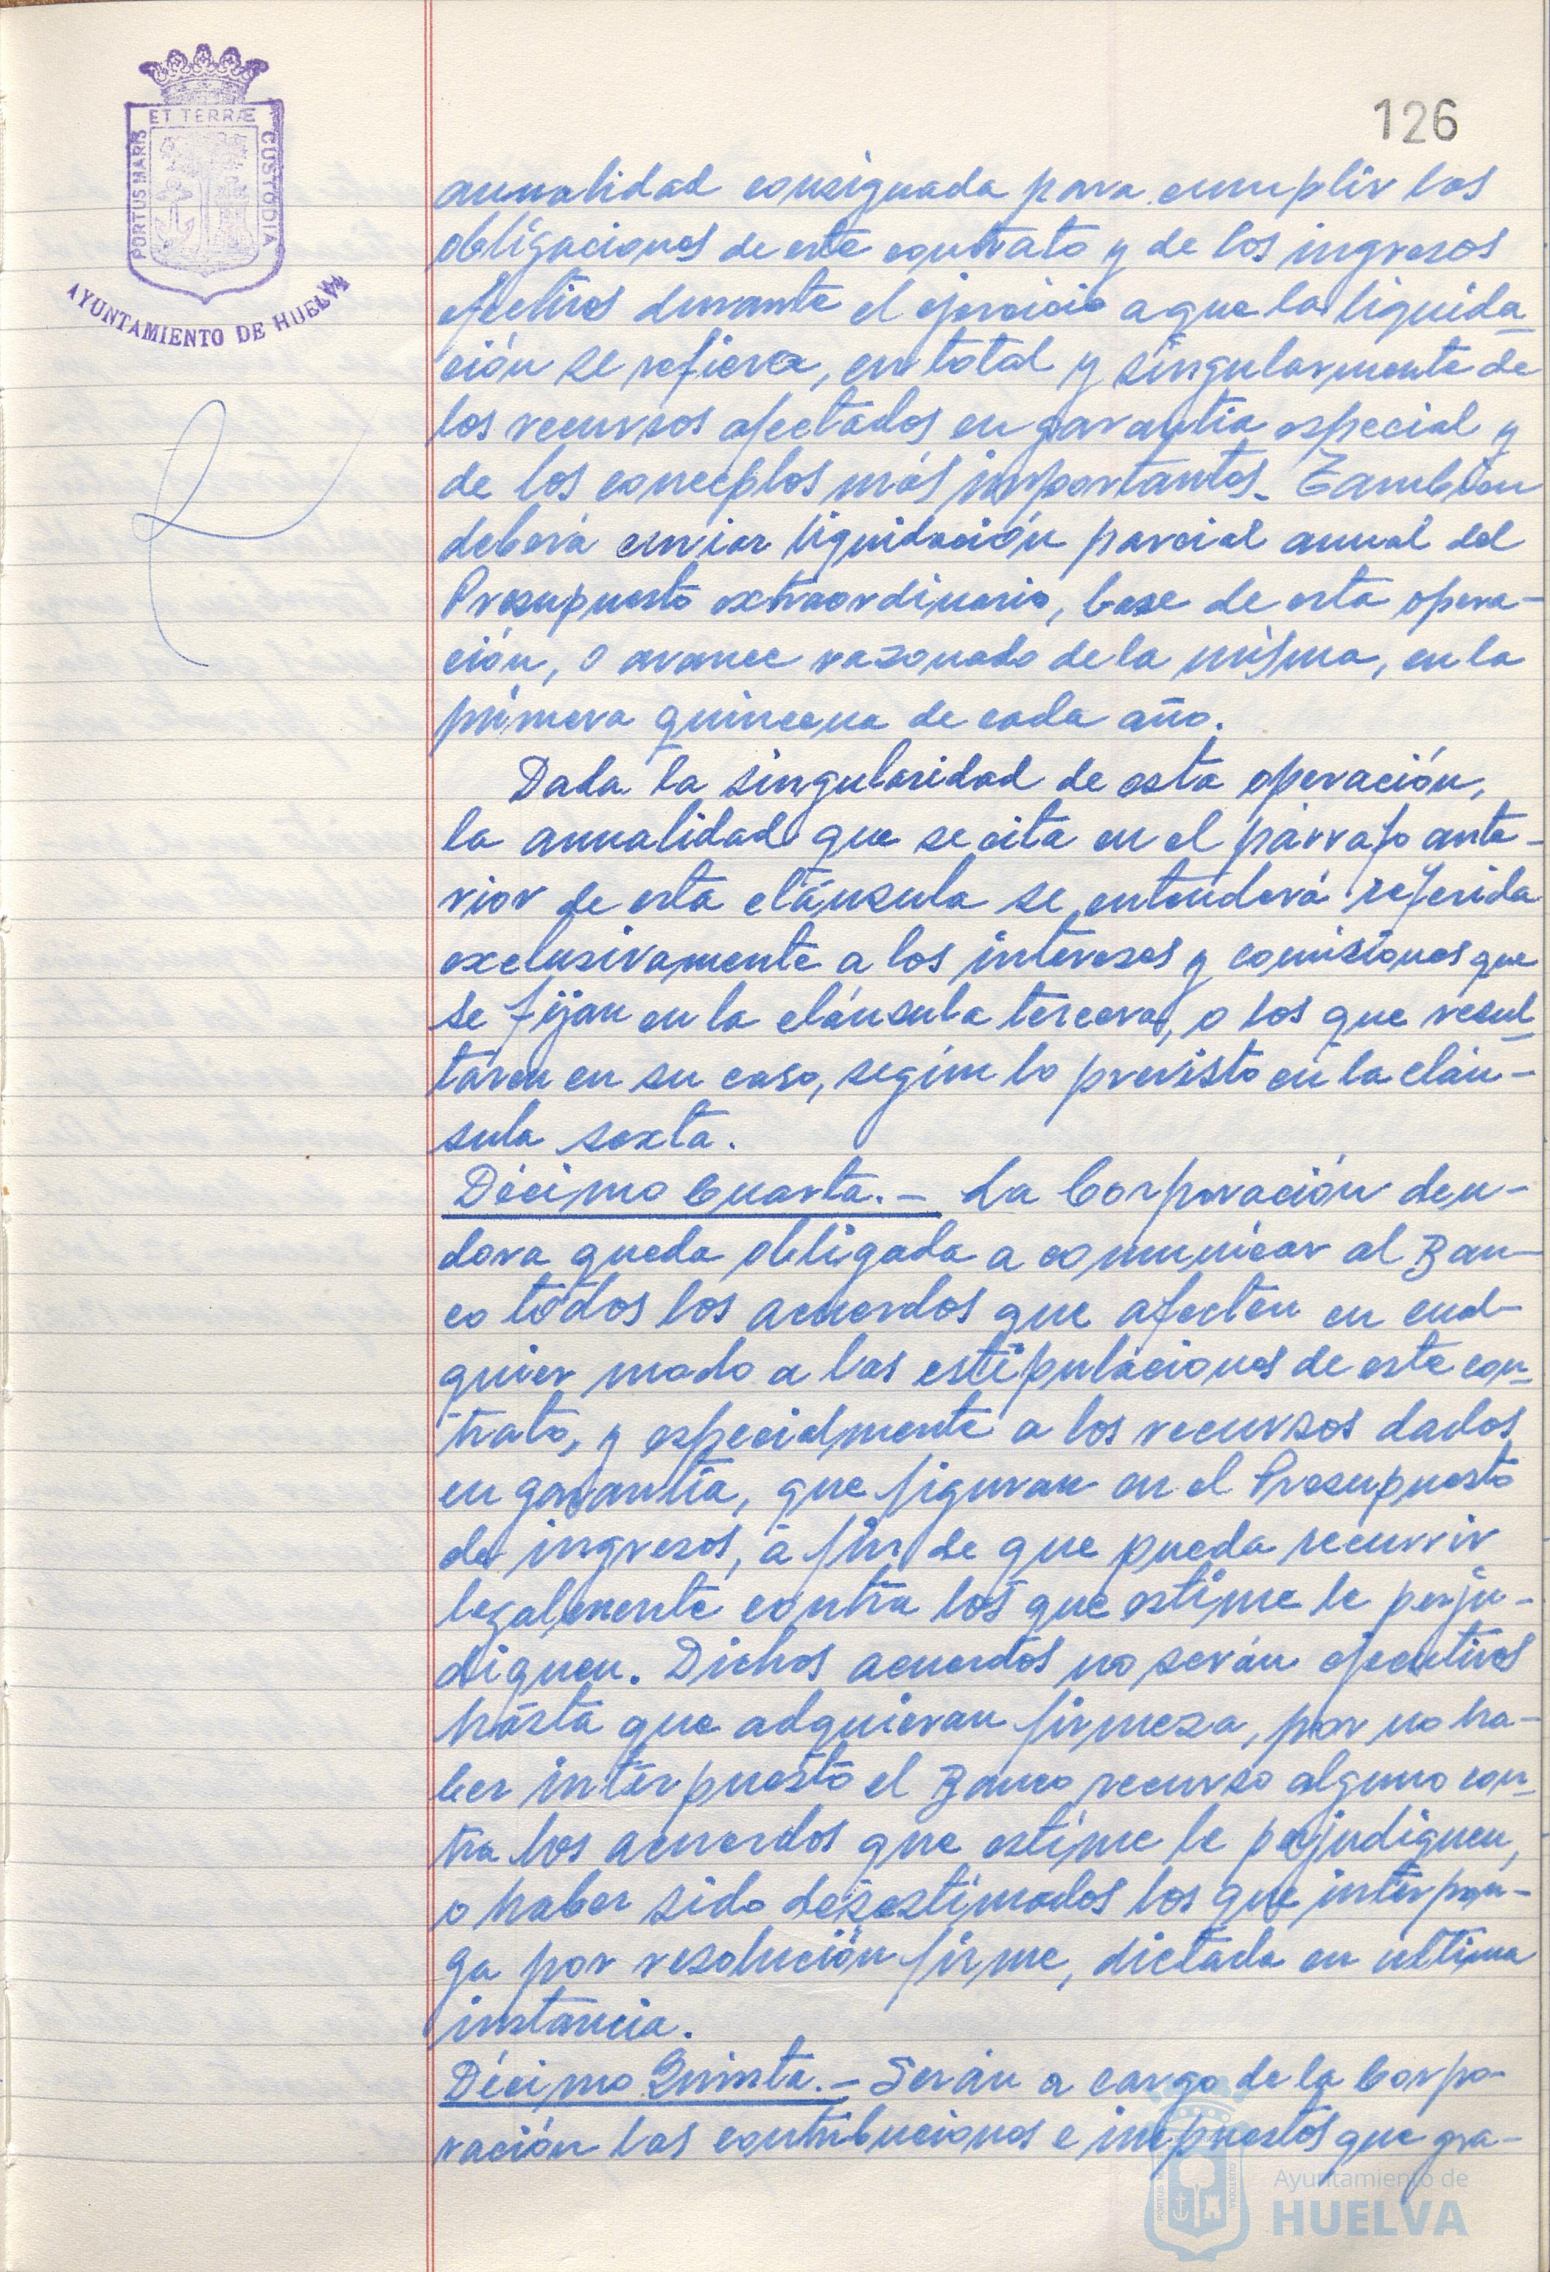 ET TERRÆ
PORTUS MARIS
CUSTODIA
AYUNTAMIENTO DE HUELVA
126
anualidad consignada para cumplir las
obligaciones de este contrato y de los ingresos
efectivos durante el ejercicio a que la liquida-
ción se refiera, en total y singularmente de
los recursos afectados en garantía especial y
de los conceptos más importantes. También
deberá enviar liquidación parcial anual del
Presupuesto extraordinario, base de esta opera-
ción, o avance razonado de la misma, en la
primera quincena de cada año.
Dada la singularidad de esta operación,
la anualidad que se cita en el párrafo ante-
rior de esta cláusula se entenderá referida
exclusivamente a los intereses y comisiones que
se fijan en la cláusula tercera, o los que resul-
taren en su caso, según lo previsto en la cláu-
sula sexta.
Décimo Cuarta.- La Corporación deu-
dora queda obligada a comunicar al Ban-
co todos los acuerdos que afecten en cual-
quier modo a las estipulaciones de este con-
trato, y especialmente a los recursos dados
en garantía, que figuran en el Presupuesto
de ingresos, a fin de que pueda recurrir
legalmente contra los que estime le perju-
diquen. Dichos acuerdos no serán ejecutivos
hasta que adquieran firmeza, por no ha-
ber interpuesto el Banco recurso alguno con-
tra los acuerdos que estime le perjudiquen,
o haber sido desestimados los que interpon-
ga por resolución firme, dictada en última
instancia.
Décimo Quinta.- Serán a cargo de la Corpo-
ración las contribuciones e impuestos que gra-
Ayuntamiento de
HUELVA